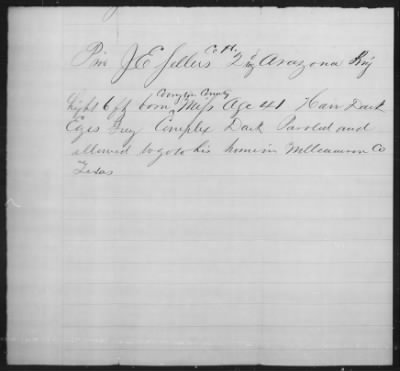 Priv J E Sellers Co H. 2 Arazona Brig
Covington County
hight 6 ft born Miss Age 41 Hair Dark
Eyes Grey Complex Dark Paroled and
allowed to go to his home in Co
Texas